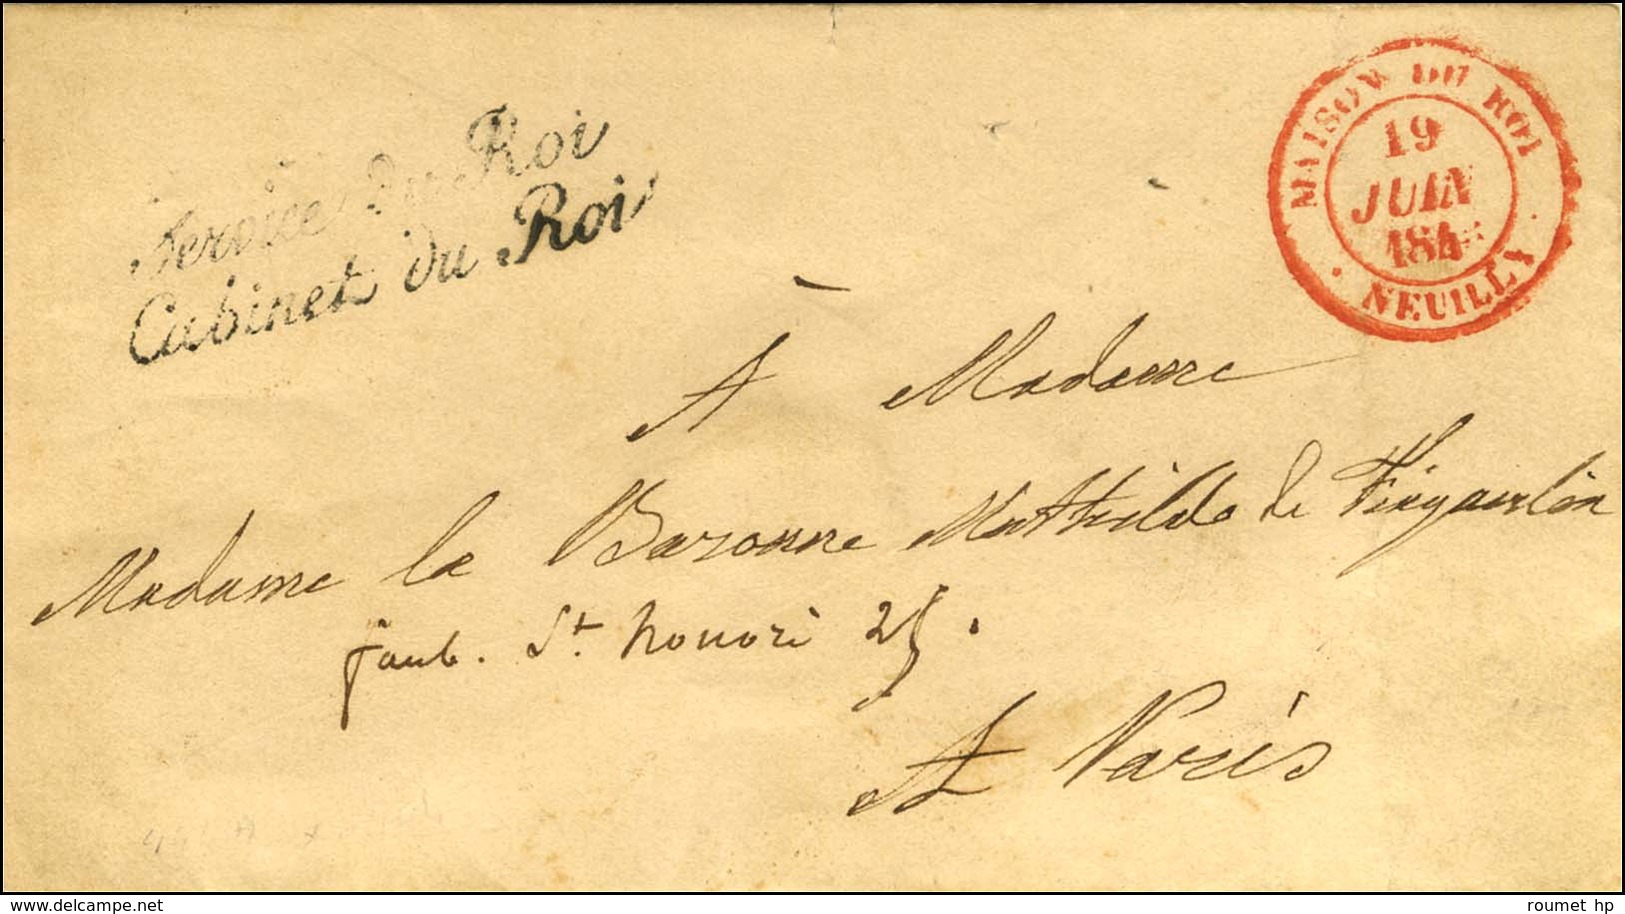 Service du Roi
Cabinet du Roi
MAISON DU ROI
19
JUIN
184
NEUILLY
A Madame
Madame la Baronne Mathilde de
faub. St. honoré 25.
A Paris
delcampe.net
roumet_hp